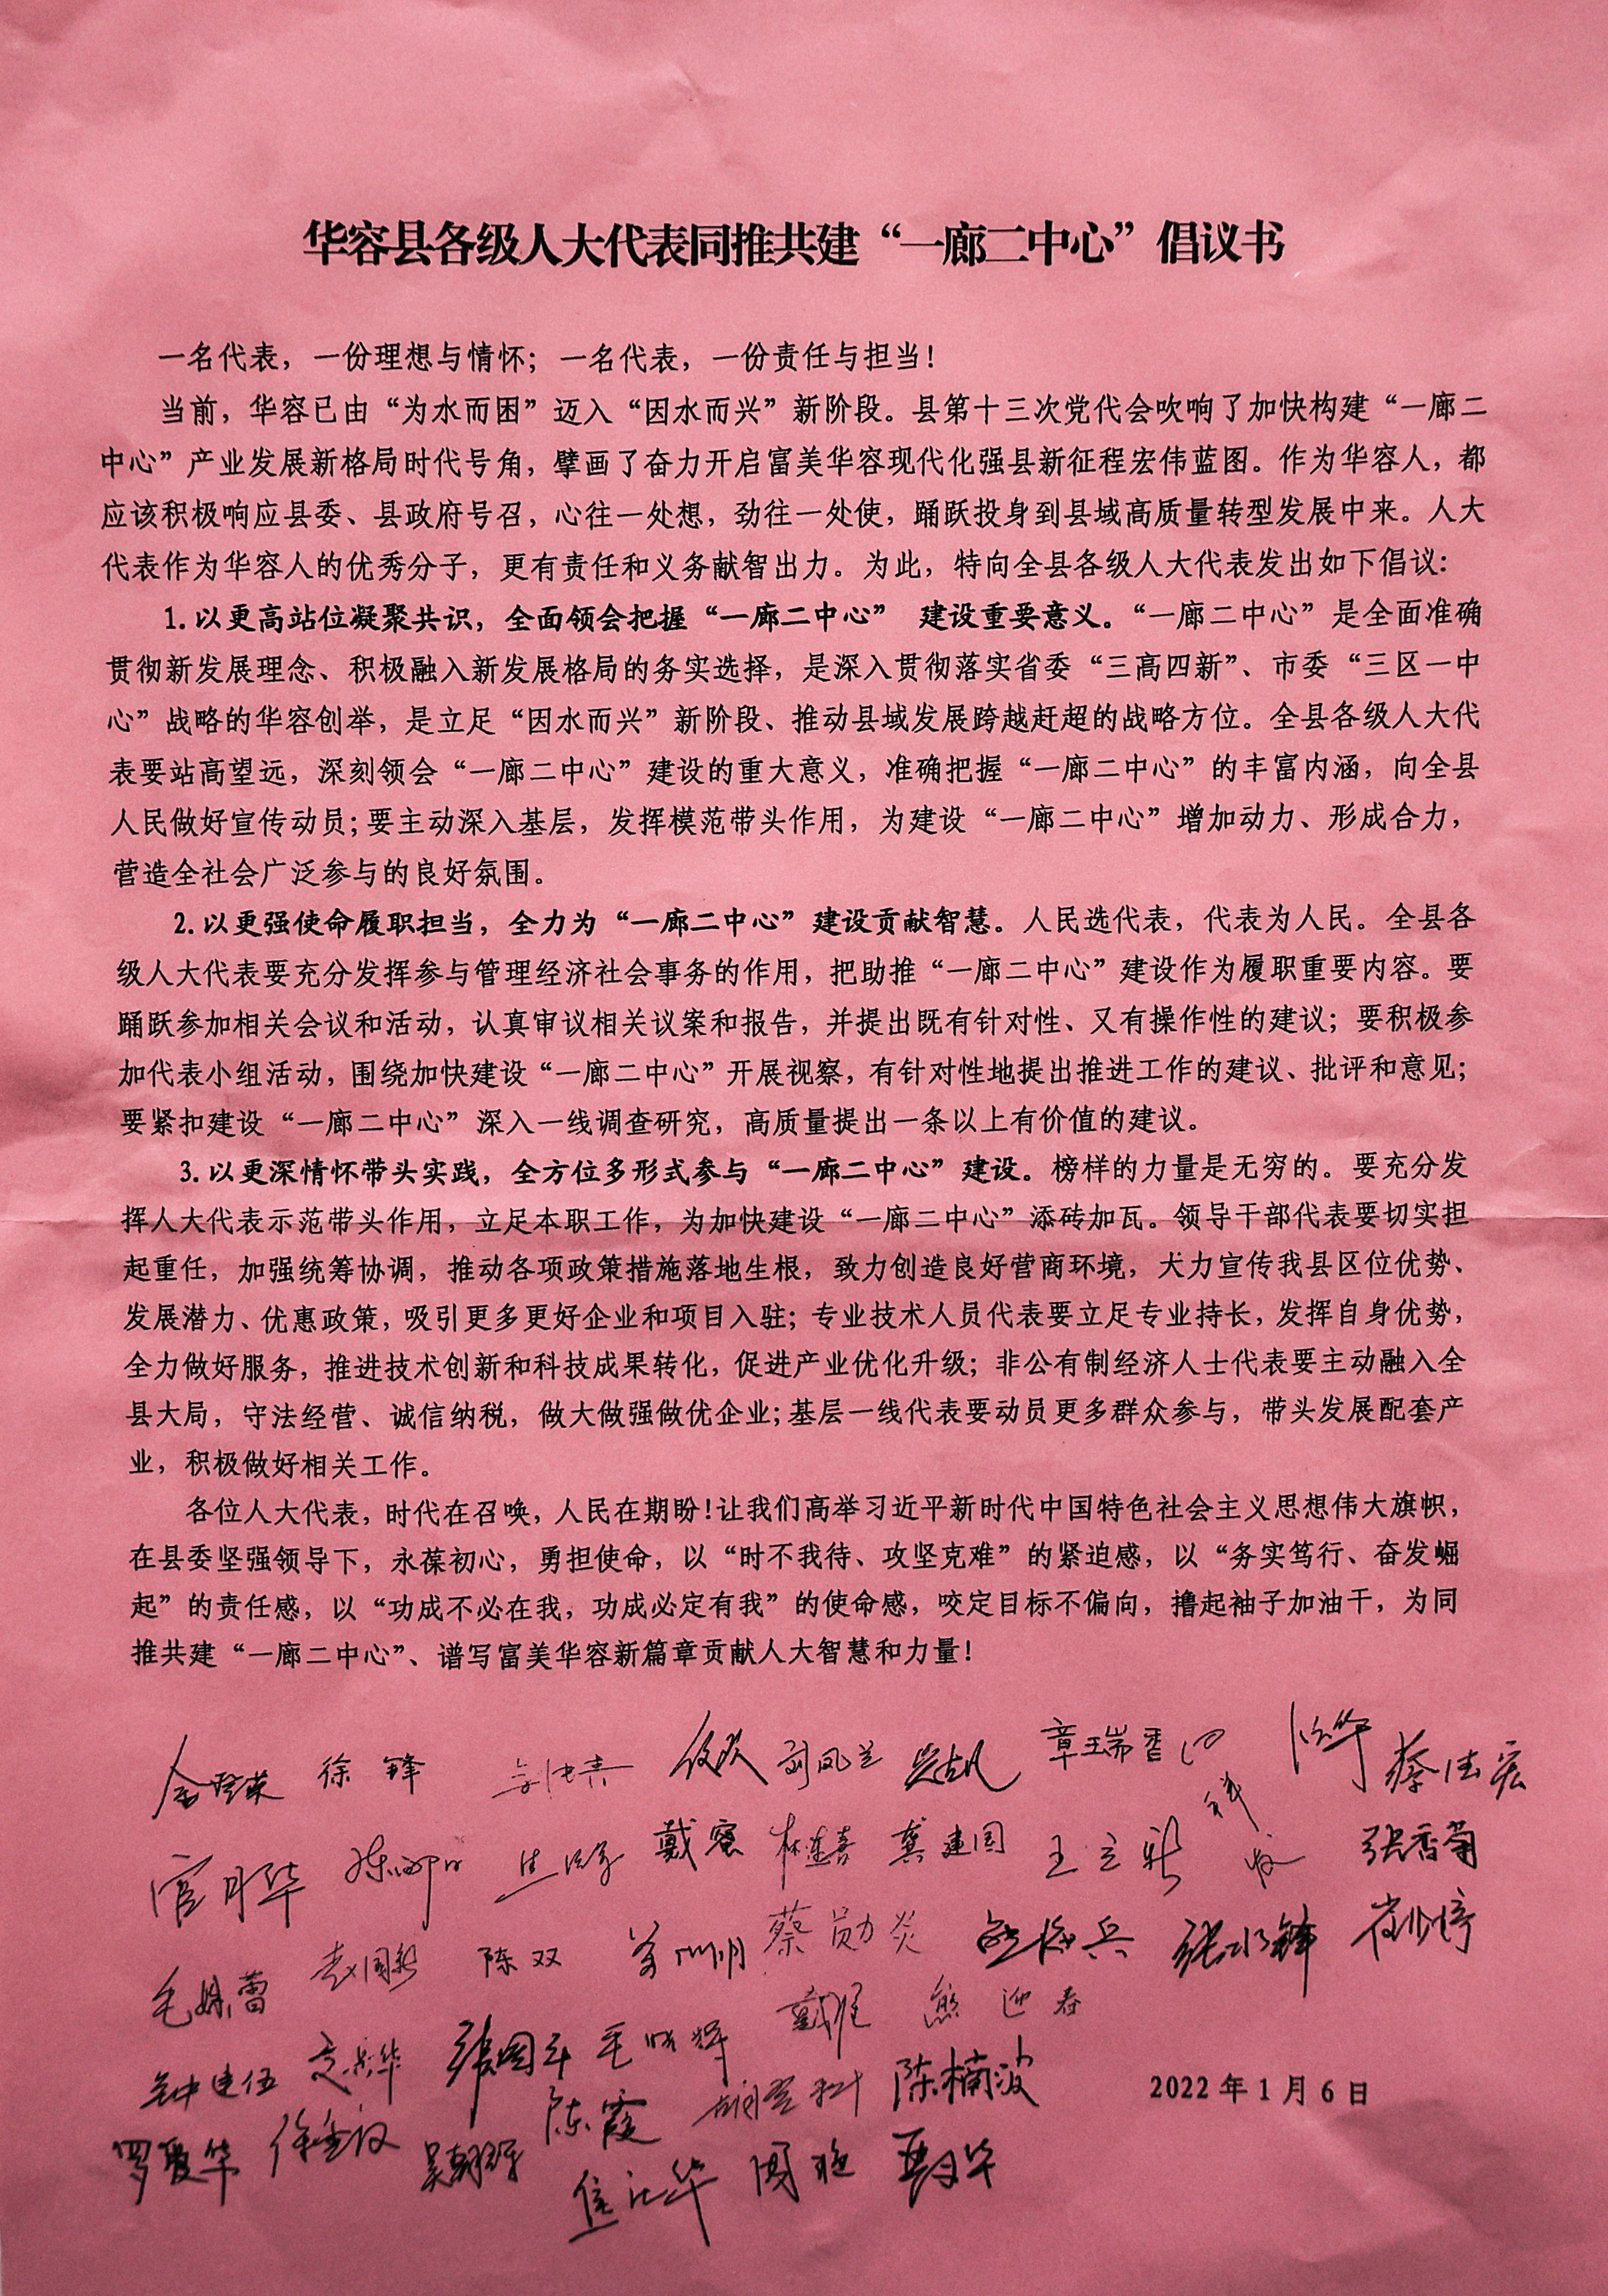 华容县各级人大代表同推共建“一廊二中心”倡议书
一名代表，一份理想与情怀；一名代表，一份责任与担当！
当前，华容已由“为水而困”迈入“因水而兴”新阶段。县第十三次党代会吹响了加快构建“一廊二
中心”产业发展新格局时代号角，擘画了奋力开启富美华容现代化强县新征程宏伟蓝图。作为华容人，都
应该积极响应县委、县政府号召，心往一处想，劲往一处使，踊跃投身到县域高质量转型发展中来。人大
代表作为华容人的优秀分子，更有责任和义务献智出力。为此，特向全县各级人大代表发出如下倡议：
1.以更高站位凝聚共识，全面领会把握“一廊二中心” 建设重要意义。“一廊二中心”是全面准确
贯彻新发展理念、积极融入新发展格局的务实选择，是深入贯彻落实省委“三高四新”、市委“三区一中
心”战略的华容创举，是立足“因水而兴”新阶段、推动县域发展跨越赶超的战略方位。全县各级人大代
表要站高望远，深刻领会“一廊二中心”建设的重大意义，准确把握“一廊二中心”的丰富内涵，向全县
人民做好宣传动员；要主动深入基层，发挥模范带头作用，为建设“一廊二中心”增加动力、形成合力，
营造全社会广泛参与的良好氛围。
2.以更强使命履职担当，全力为“一廊二中心”建设贡献智慧。人民选代表，代表为人民。全县各
级人大代表要充分发挥参与管理经济社会事务的作用，把助推“一廊二中心”建设作为履职重要内容。要
踊跃参加相关会议和活动，认真审议相关议案和报告，并提出既有针对性、又有操作性的建议；要积极参
加代表小组活动，围绕加快建设“一廊二中心”开展视察，有针对性地提出推进工作的建议、批评和意见；
要紧扣建设“一廊二中心”深入一线调查研究，高质量提出一条以上有价值的建议。
3.以更深情怀带头实践，全方位多形式参与“一廊二中心”建设。榜样的力量是无穷的。要充分发
挥人大代表示范带头作用，立足本职工作，为加快建设“一廊二中心”添砖加瓦。领导干部代表要切实担
起重任，加强统筹协调，推动各项政策措施落地生根，致力创造良好营商环境，大力宣传我县区位优势、
发展潜力、优惠政策，吸引更多更好企业和项目入驻；专业技术人员代表要立足专业持长，发挥自身优势，
全力做好服务，推进技术创新和科技成果转化，促进产业优化升级；非公有制经济人士代表要主动融入全
县大局，守法经营、诚信纳税，做大做强做优企业；基层一线代表要动员更多群众参与，带头发展配套产
业，积极做好相关工作。
各位人大代表，时代在召唤，人民在期盼！让我们高举习近平新时代中国特色社会主义思想伟大旗帜，
在县委坚强领导下，永葆初心，勇担使命，以“时不我待、攻坚克难”的紧迫感，以“务实笃行、奋发崛
起”的责任感，以“功成不必在我，功成必定有我”的使命感，咬定目标不偏向，撸起袖子加油干，为同
推共建“一廊二中心”、谱写富美华容新篇章贡献人大智慧和力量！
徐锋 刘凤兰 章瑞香 蔡法宏
官月华 戴蜜 林连喜 龚建国 王立新 张香菊
陈双 蔡勋炎 张水锋
戴佳 熊迎春
钟建伍 张国军 毛晓辉
陈霞 陈楠波
2022年1月6日
罗爱华 周艳